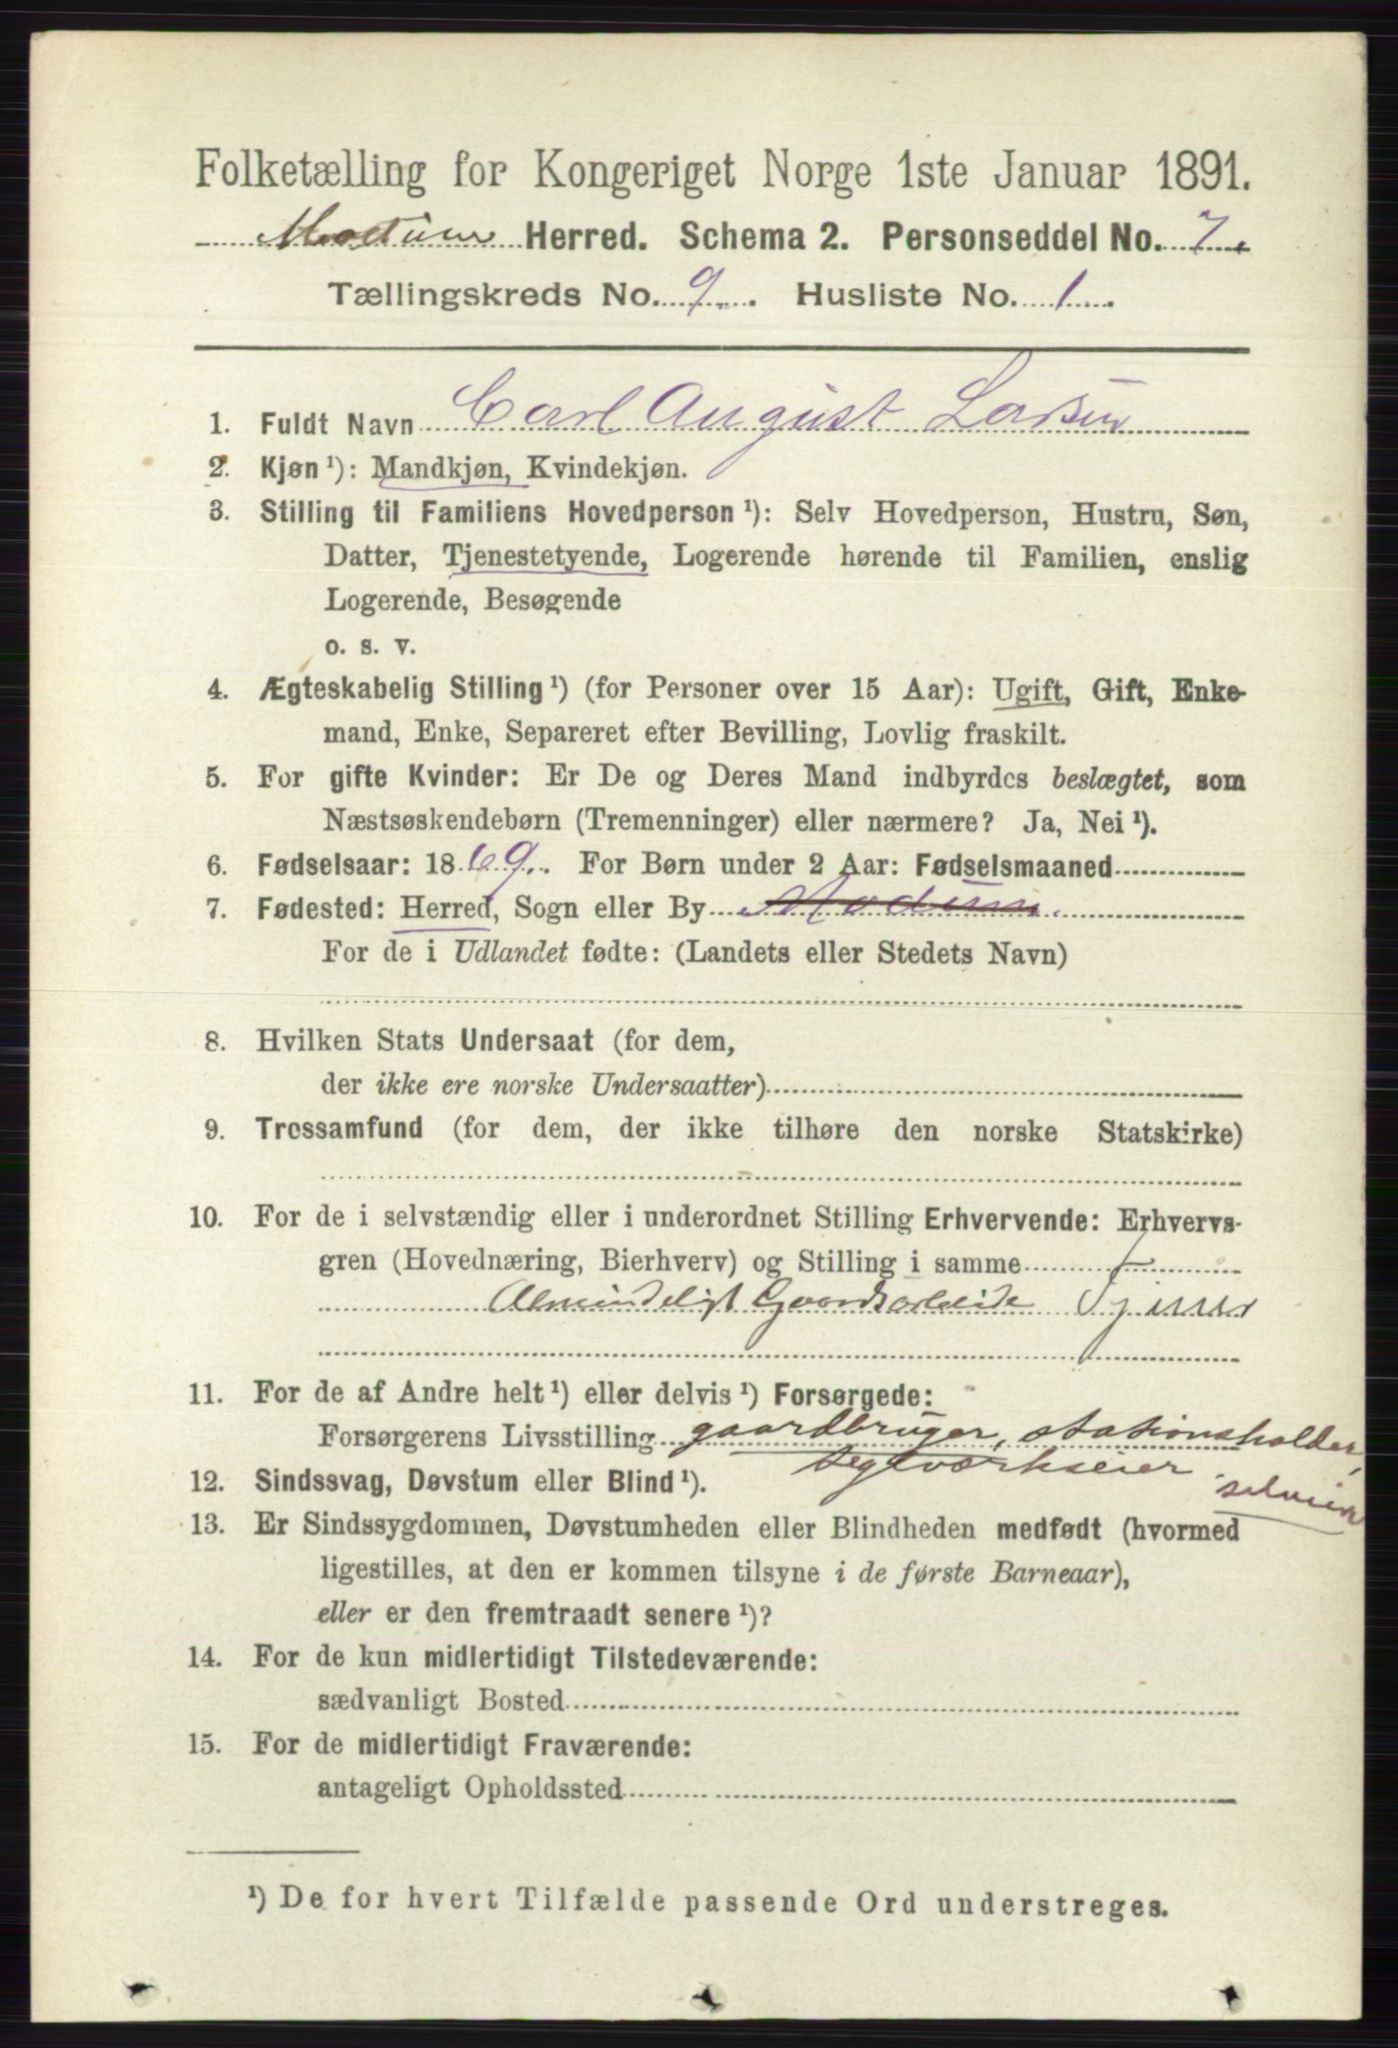 Folketælling for Kongeriget Norge 1ste Januar 1891.
Modum Herred. Schema 2. Personseddel No. 7.
Tællingskreds No. 9. Husliste No. 1.
1. Fuldt Navn Carl August Larsen
2. Kjøn ¹): Mandkjøn, Kvindekjøn.
3. Stilling til Familiens Hovedperson ¹): Selv Hovedperson, Hustru, Søn,
Datter, Tjenestetyende, Logerende hørende til Familien, enslig
Logerende, Besøgende
o. s. v.
4. Ægteskabelig Stilling ¹) (for Personer over 15 Aar): Ugift, Gift, Enke-
mand, Enke, Separeret efter Bevilling, Lovlig fraskilt.
5. For gifte Kvinder: Er De og Deres Mand indbyrdes beslægtet, som
Næstsøskendebørn (Tremenninger) eller nærmere? Ja, Nei ¹).
6. Fødselsaar: 1869. For Børn under 2 Aar: Fødselsmaaned
7. Fødested: Herred, Sogn eller By Modum.
For de i Udlandet fødte: (Landets eller Stedets Navn)
8. Hvilken Stats Undersaat (for dem,
der ikke ere norske Undersaatter)
9. Trossamfund (for dem, der ikke tilhøre den norske Statskirke)
10. For de i selvstændig eller i underordnet Stilling Erhvervende: Erhvervs-
gren (Hovednæring, Bierhverv) og Stilling i samme
Almindeligt Gaardsarbeide Tjener
11. For de af Andre helt ¹) eller delvis ¹) Forsørgede:
Forsørgerens Livsstilling gaardbruger, stationsholder,
teglværkseier selveier
12. Sindssvag, Døvstum eller Blind ¹).
13. Er Sindssygdommen, Døvstumheden eller Blindheden medfødt (hvormed
ligestilles, at den er kommen tilsyne i de første Barneaar),
eller er den fremtraadt senere ¹)?
14. For de kun midlertidigt Tilstedeværende:
sædvanligt Bosted
15. For de midlertidigt Fraværende:
antageligt Opholdssted
¹) De for hvert Tilfælde passende Ord understreges.